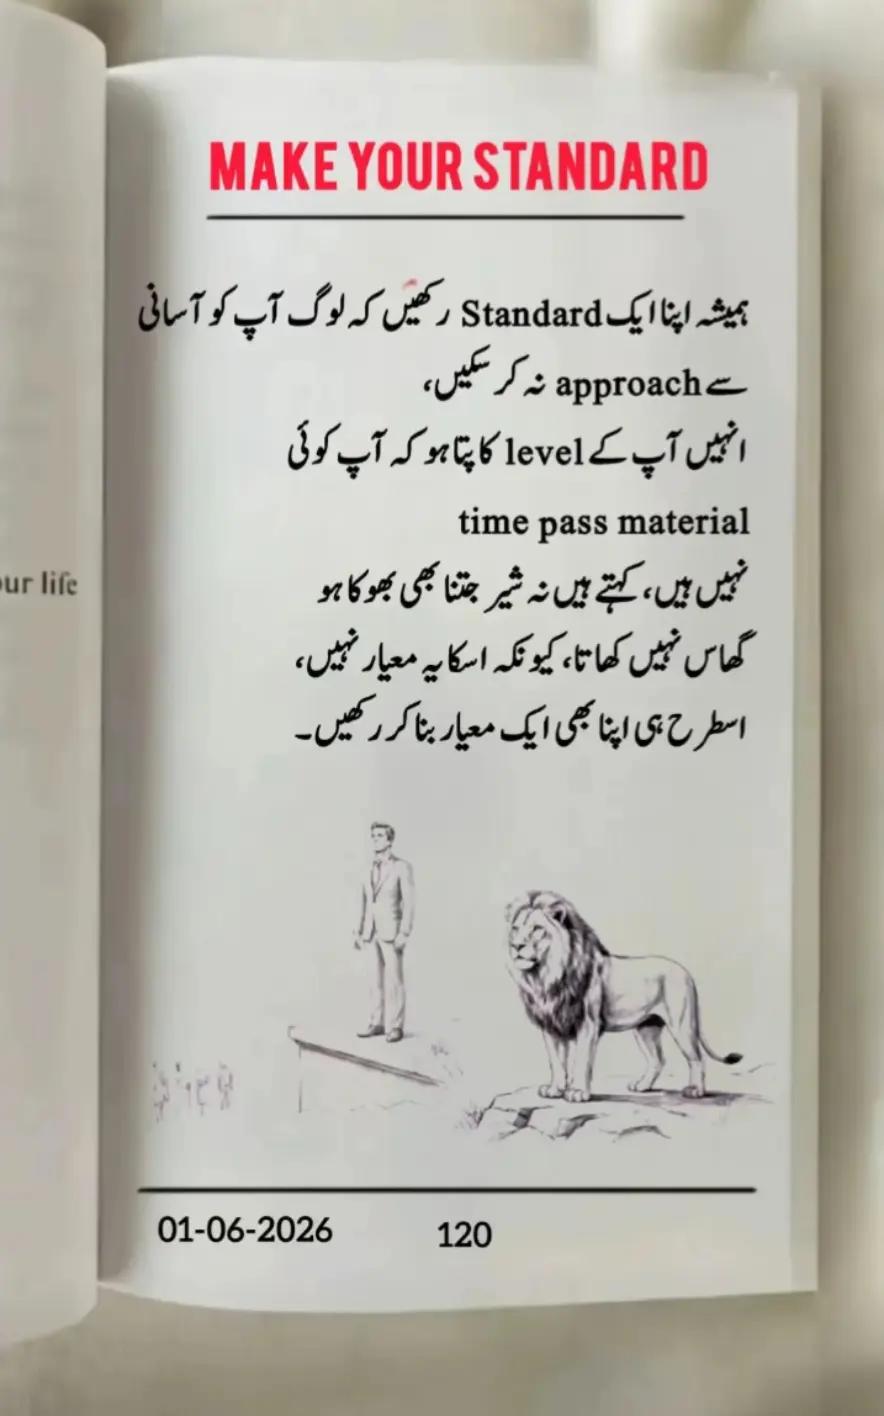 MAKE YOUR STANDARD
ہمیشہ اپنا ایک Standard رکھیں کہ لوگ آپ کو آسانی
سے approach نہ کر سکیں،
انہیں آپ کے level کا پتا ہو کہ آپ کوئی
time pass material
نہیں ہیں، کہتے ہیں نہ شیر جتنا بھی بھوکا ہو
گھاس نہیں کھاتا، کیونکہ اسکا یہ معیار نہیں،
اسطرح ہی اپنا بھی ایک معیار بنا کر رکھیں۔
01-06-2026
120
our life